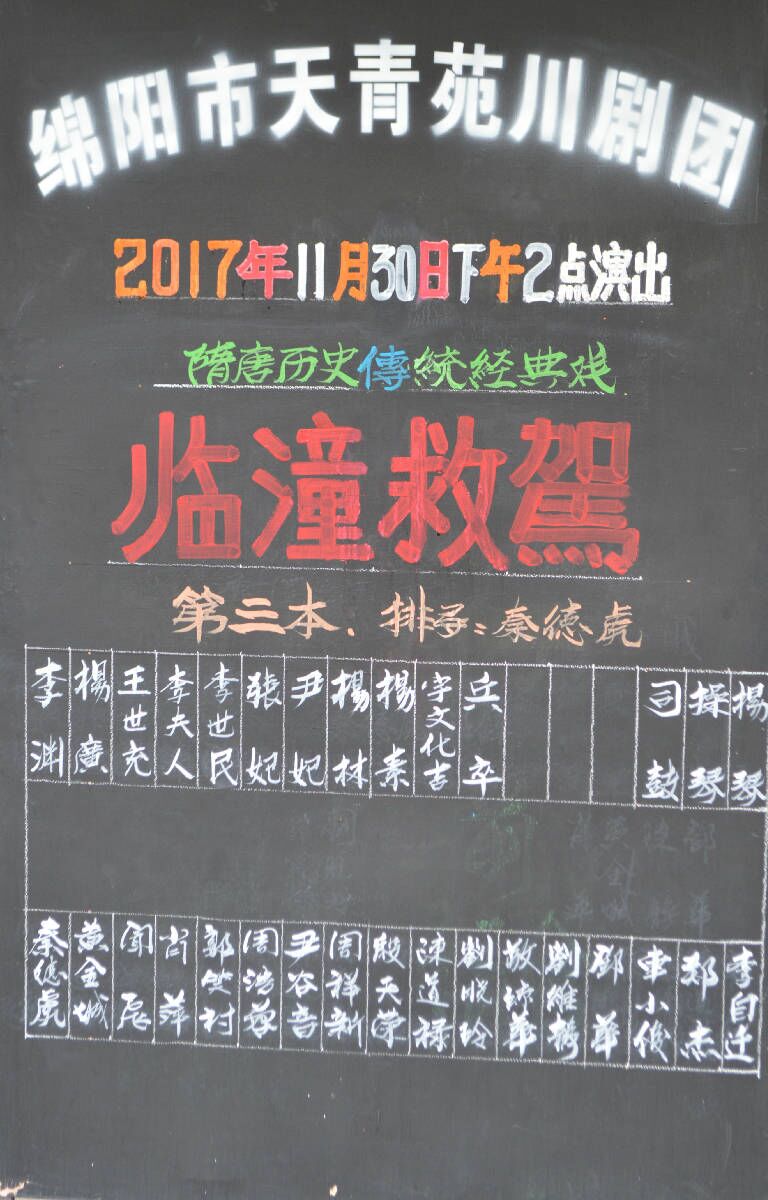 绵阳市天青苑川剧团
2017年11月30日下午2点演出
隋唐历史傳統经典戏
临潼救駕
第三本．排子：秦德虎
李渊 楊廣 王世充 李夫人 李世民 張妃 尹妃 楊林 楊素 宇文化吉 兵卒 司鼓 操琴 揚琴
秦德虎 黄金城 闻辰 肖萍 郭笑村 周浩蓉 尹谷音 周祥新 殷天荣 陳道禄 劉悦玲 敬沛華 劉維梅 鄧華 車小俊 郑杰 李自廷